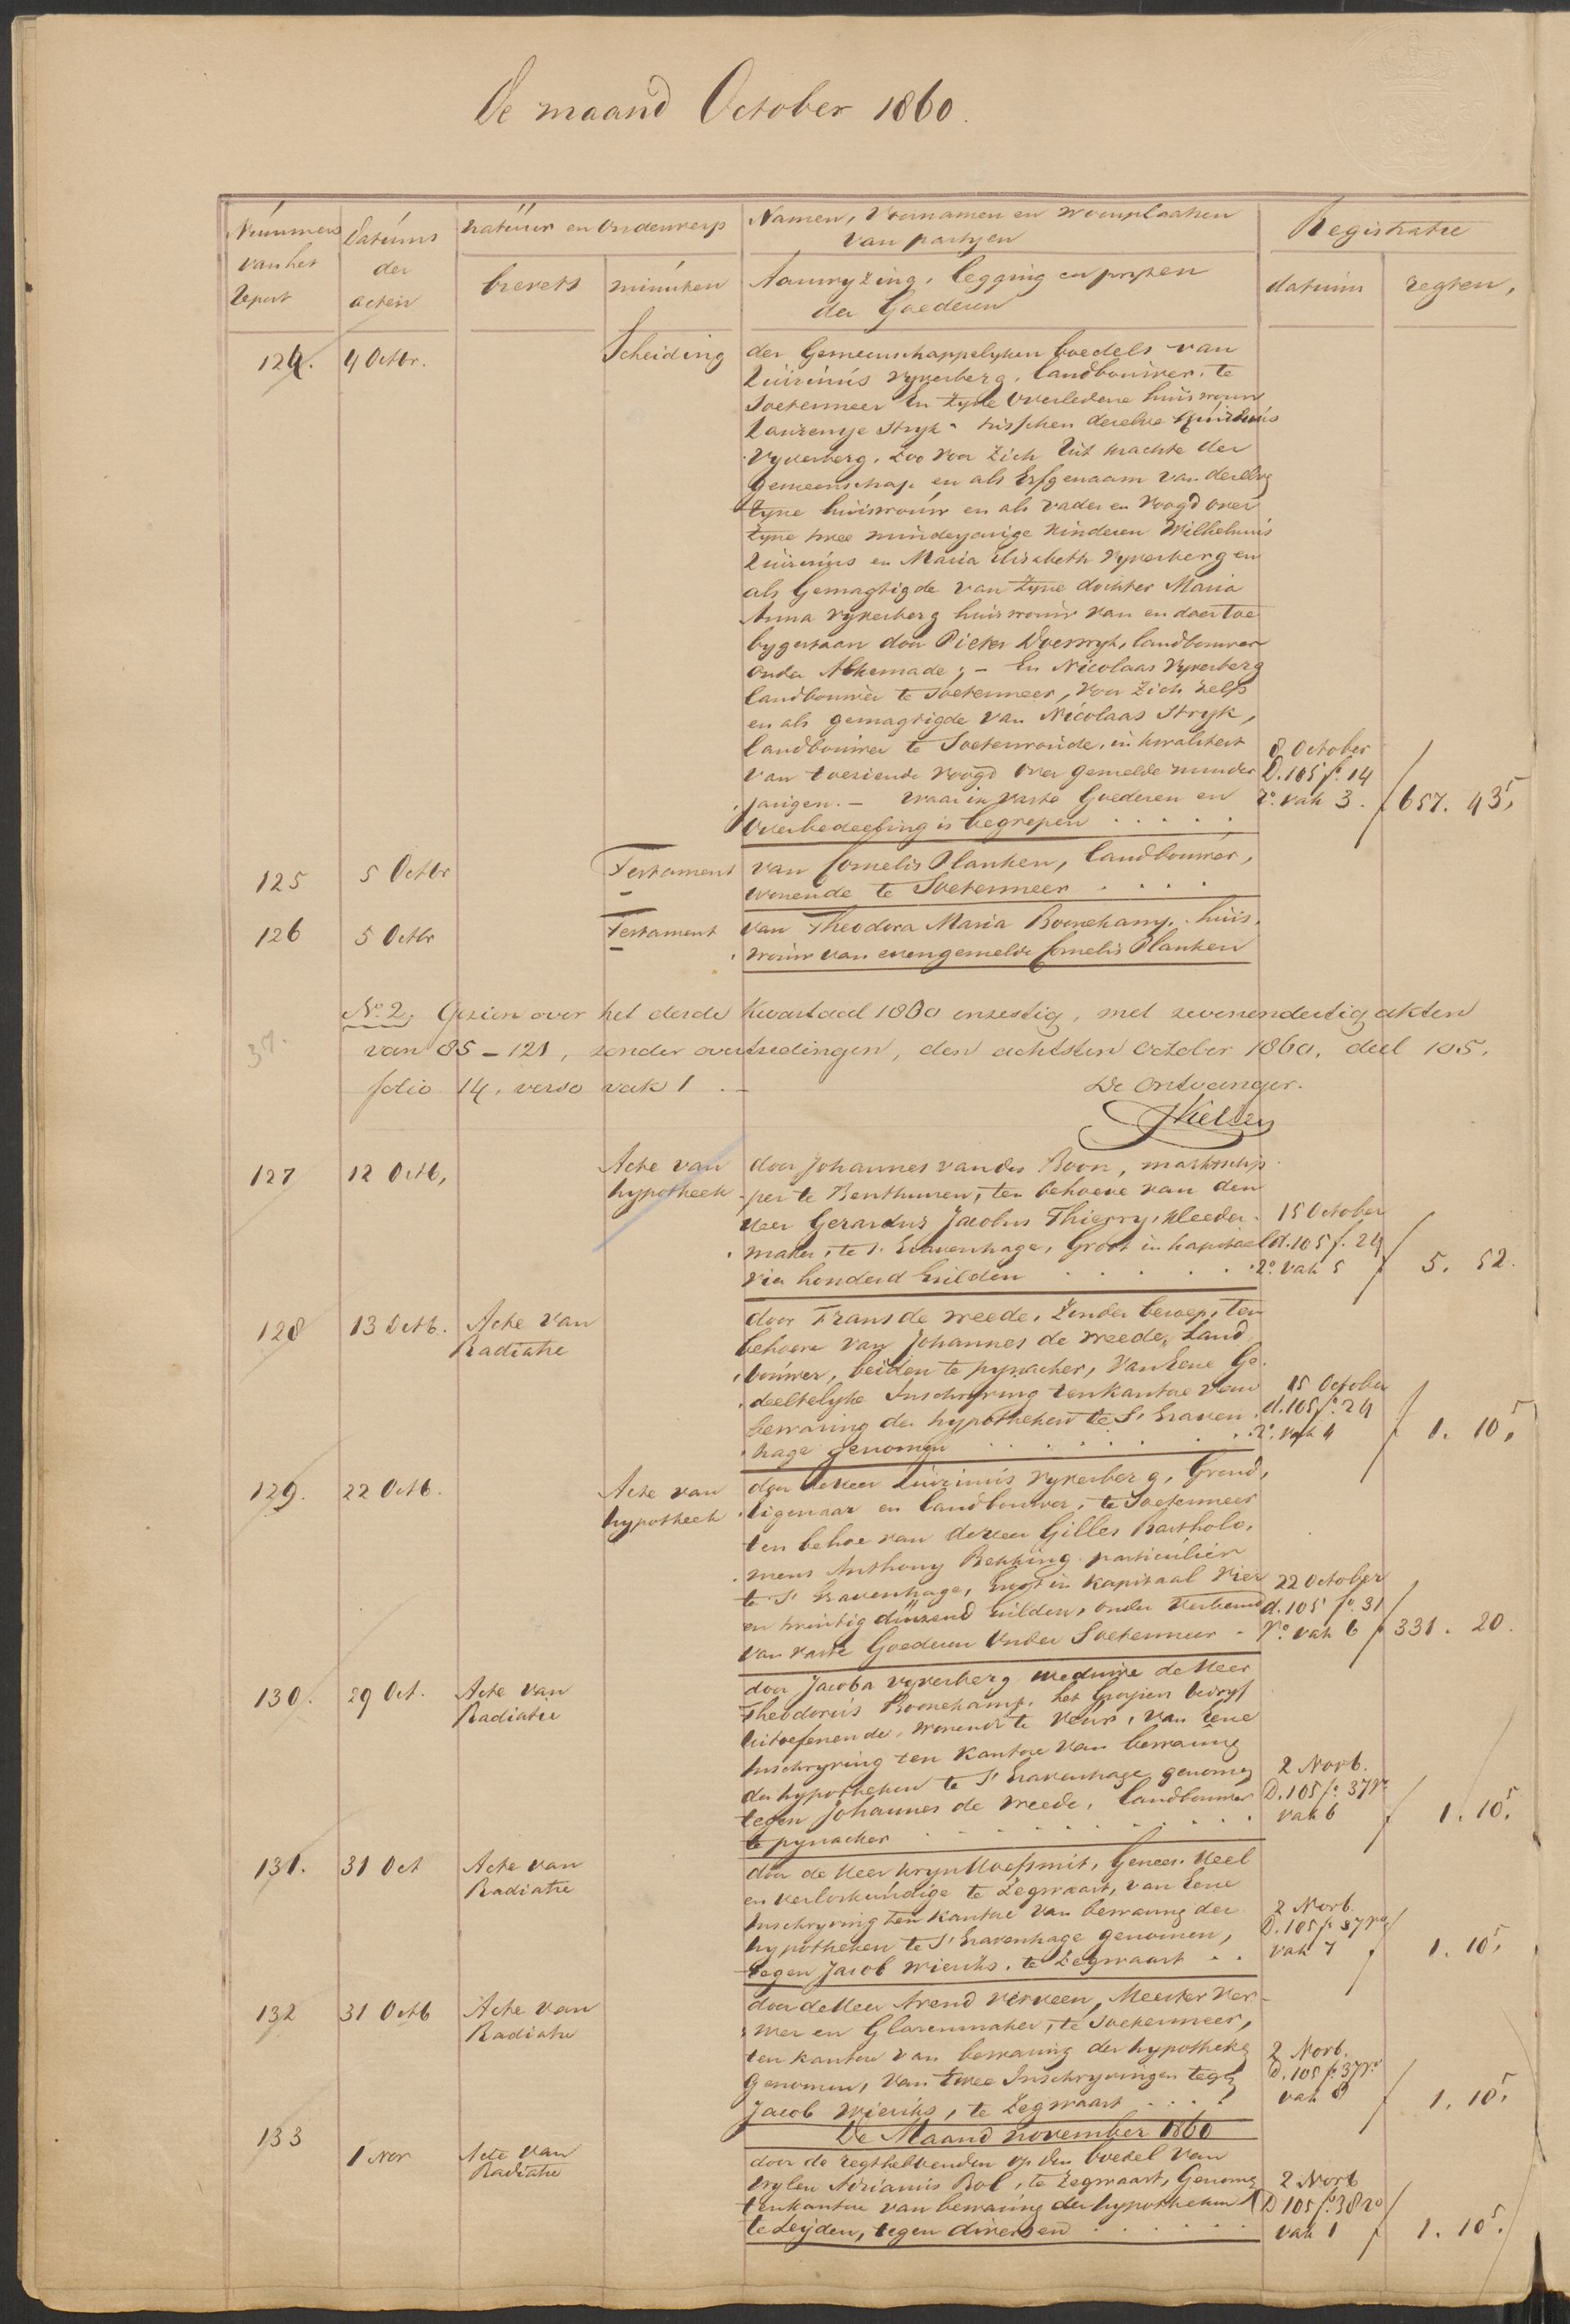 De maand October 1860.
Nummers van het Repert
Datums der acten
natuur en Onderwerp
brevets
minuten
Namen, Voornamen en woonplaatsen
van partyen
Aanwyzing, legging en pryzen
der Goederen
Registratie
datum
regten,
124. 4 Octbr. Scheiding der Gemeenschappelyken boedels van
Quirinus Vyverberg, landbouwer, te
Soetermeer En Zyne Overledene huisvrouw
Laurentje Stryk - tusschen dezelve Quirinus
Vyverberg, Zoo voor Zich Uit krachte der
gemeenschap en als Erfgenaam van dezelve
Zyne huisvrouw en als vader en Voogd over
Zyne twee minderjarige Kinderen Wilhelmus
Quirinus en Maria Elisabeth Vyverberg en
als Gemagtigde van Zyne dochter Maria
Anna Vyverberg huisvrouw van en daartoe
bygestaan door Pieter Doeswyk, landbouwer
onder Alkemade; - En Nicolaas Vyverberg
landbouwer te Soetermeer, voor Zich Zelf
en als gemagtigde van Nicolaas Stryk,
landbouwer te Soeterwoude, in kwaliteit
van toeziende voogd over gemelde minder
jarigen. - waarin vaste Goederen en
Overbedeeling is begrepen . . . . .
8 October
D. 105 fo. 14
ro. vak 3. f 657. 43 5,
125 5 Octbr Testament van Cornelis Planken, landbouwer,
wonende te Soetermeer . . . .
126 5 Octbr Testament van Theodora Maria Boonekamp, huis,
vrouw van evengemelde Cornelis Planken
37.
No. 2. Gezien over het derde Kwartaal 1860 enzestig, met zevenendertig akten
van 85 - 121, zonder overtredingen, den achtsten October 1860, deel 105,
folio 14, verso vak 1 . -
De Ontvanger.
127 12 Octb, Acte van hypotheek door Johannes van der Boon, marktschip
per te Benthuizen, ten behoeve van den
Heer Gerardus Jacobus Thierry, Kleeder
maker, te s' Gravenhage, Groot in kapitaal
vier honderd Gulden . . . . .
15 October
d. 105 f. 24
ro. vak 5 f 5. 52.
128 13 Octb. Acte van Radiatie door Frans de Vreede, Zonder beroep, ten
behoeve van Johannes de Vreede, Land
bouwer, beiden te pynacker, Van Eene Ge
deeltelyke Inschryving ten kantore van
bewaring der hypotheken te S' Graven
hage genomen . . . . .
15 October
d. 105 fo. 24
ro. vak 4 f 1. 10 5,
129. 22 Octb. Acte van hypotheek door de Heer Quirinus Vyverberg, Grond,
Eigenaar en landbouwer, te Soetermeer
ten behoe van de Heer Gilles Bartholo,
meus Anthony Bekking particulier
te S' Gravenhage, Groot in kapitaal Vier
en twintig duizend Gulden, onder Verband
van vaste Goederen Onder Soetermeer -
22 October
d. 105 fo. 31
Vo. vak 6 f 331. 20.
130. 29 Oct. Acte van Radiatie door Jacoba Vyverberg weduwe de Heer
Theodorus Boonekamp, het Grofsien bedryf
Uitoefenende, wonende te Veur, van Eene
Inschryving ten Kantore van bewaring
der hypotheken te S' Gravenhage genomen
tegen Johannes de Vreede, landbouwer
te pynacker . . . . .
2 Novb.
D. 105 fo. 37 Vo
vak 6 f 1. 10 5,
131. 31 Oct Acte van Radiatie door de Heer Kryn Hoefsmit, Genees. Heel
en Verloskundige te Zegwaart, van Eene
Inschryving ten Kantore van bewaring der
hypotheken te S' Gravenhage genomen,
tegen Jacob Wieriks, te Zegwaart . .
2 Novb.
D. 105 fo 37 Vo
vak 7 f 1. 10 5,
132 31 Octb Acte van Radiatie door de Heer Arend Verveen, Meester Ver
wer en Glazenmaker, te Soetermeer,
ten kantore van bewaring der hypotheken
Genomen, Van twee Inschryvingen tegen
Jacob Wieriks, te Zegwaart . . . .
2 Novb.
D. 105 fo. 37 Vo
vak 8 f 1. 10 5,
De Maand november 1860
133 1 Nov Acte van Radiatie door de regthebbenden op den boedel van
wylen Adrianus Bol, te Zegwaart, Genomen
ten kantore van bewaring der hypotheken
te Leyden, tegen diversen . . . . .
2 Novb
D 105 fo. 38 ro
vak 1 f 1. 10 5,